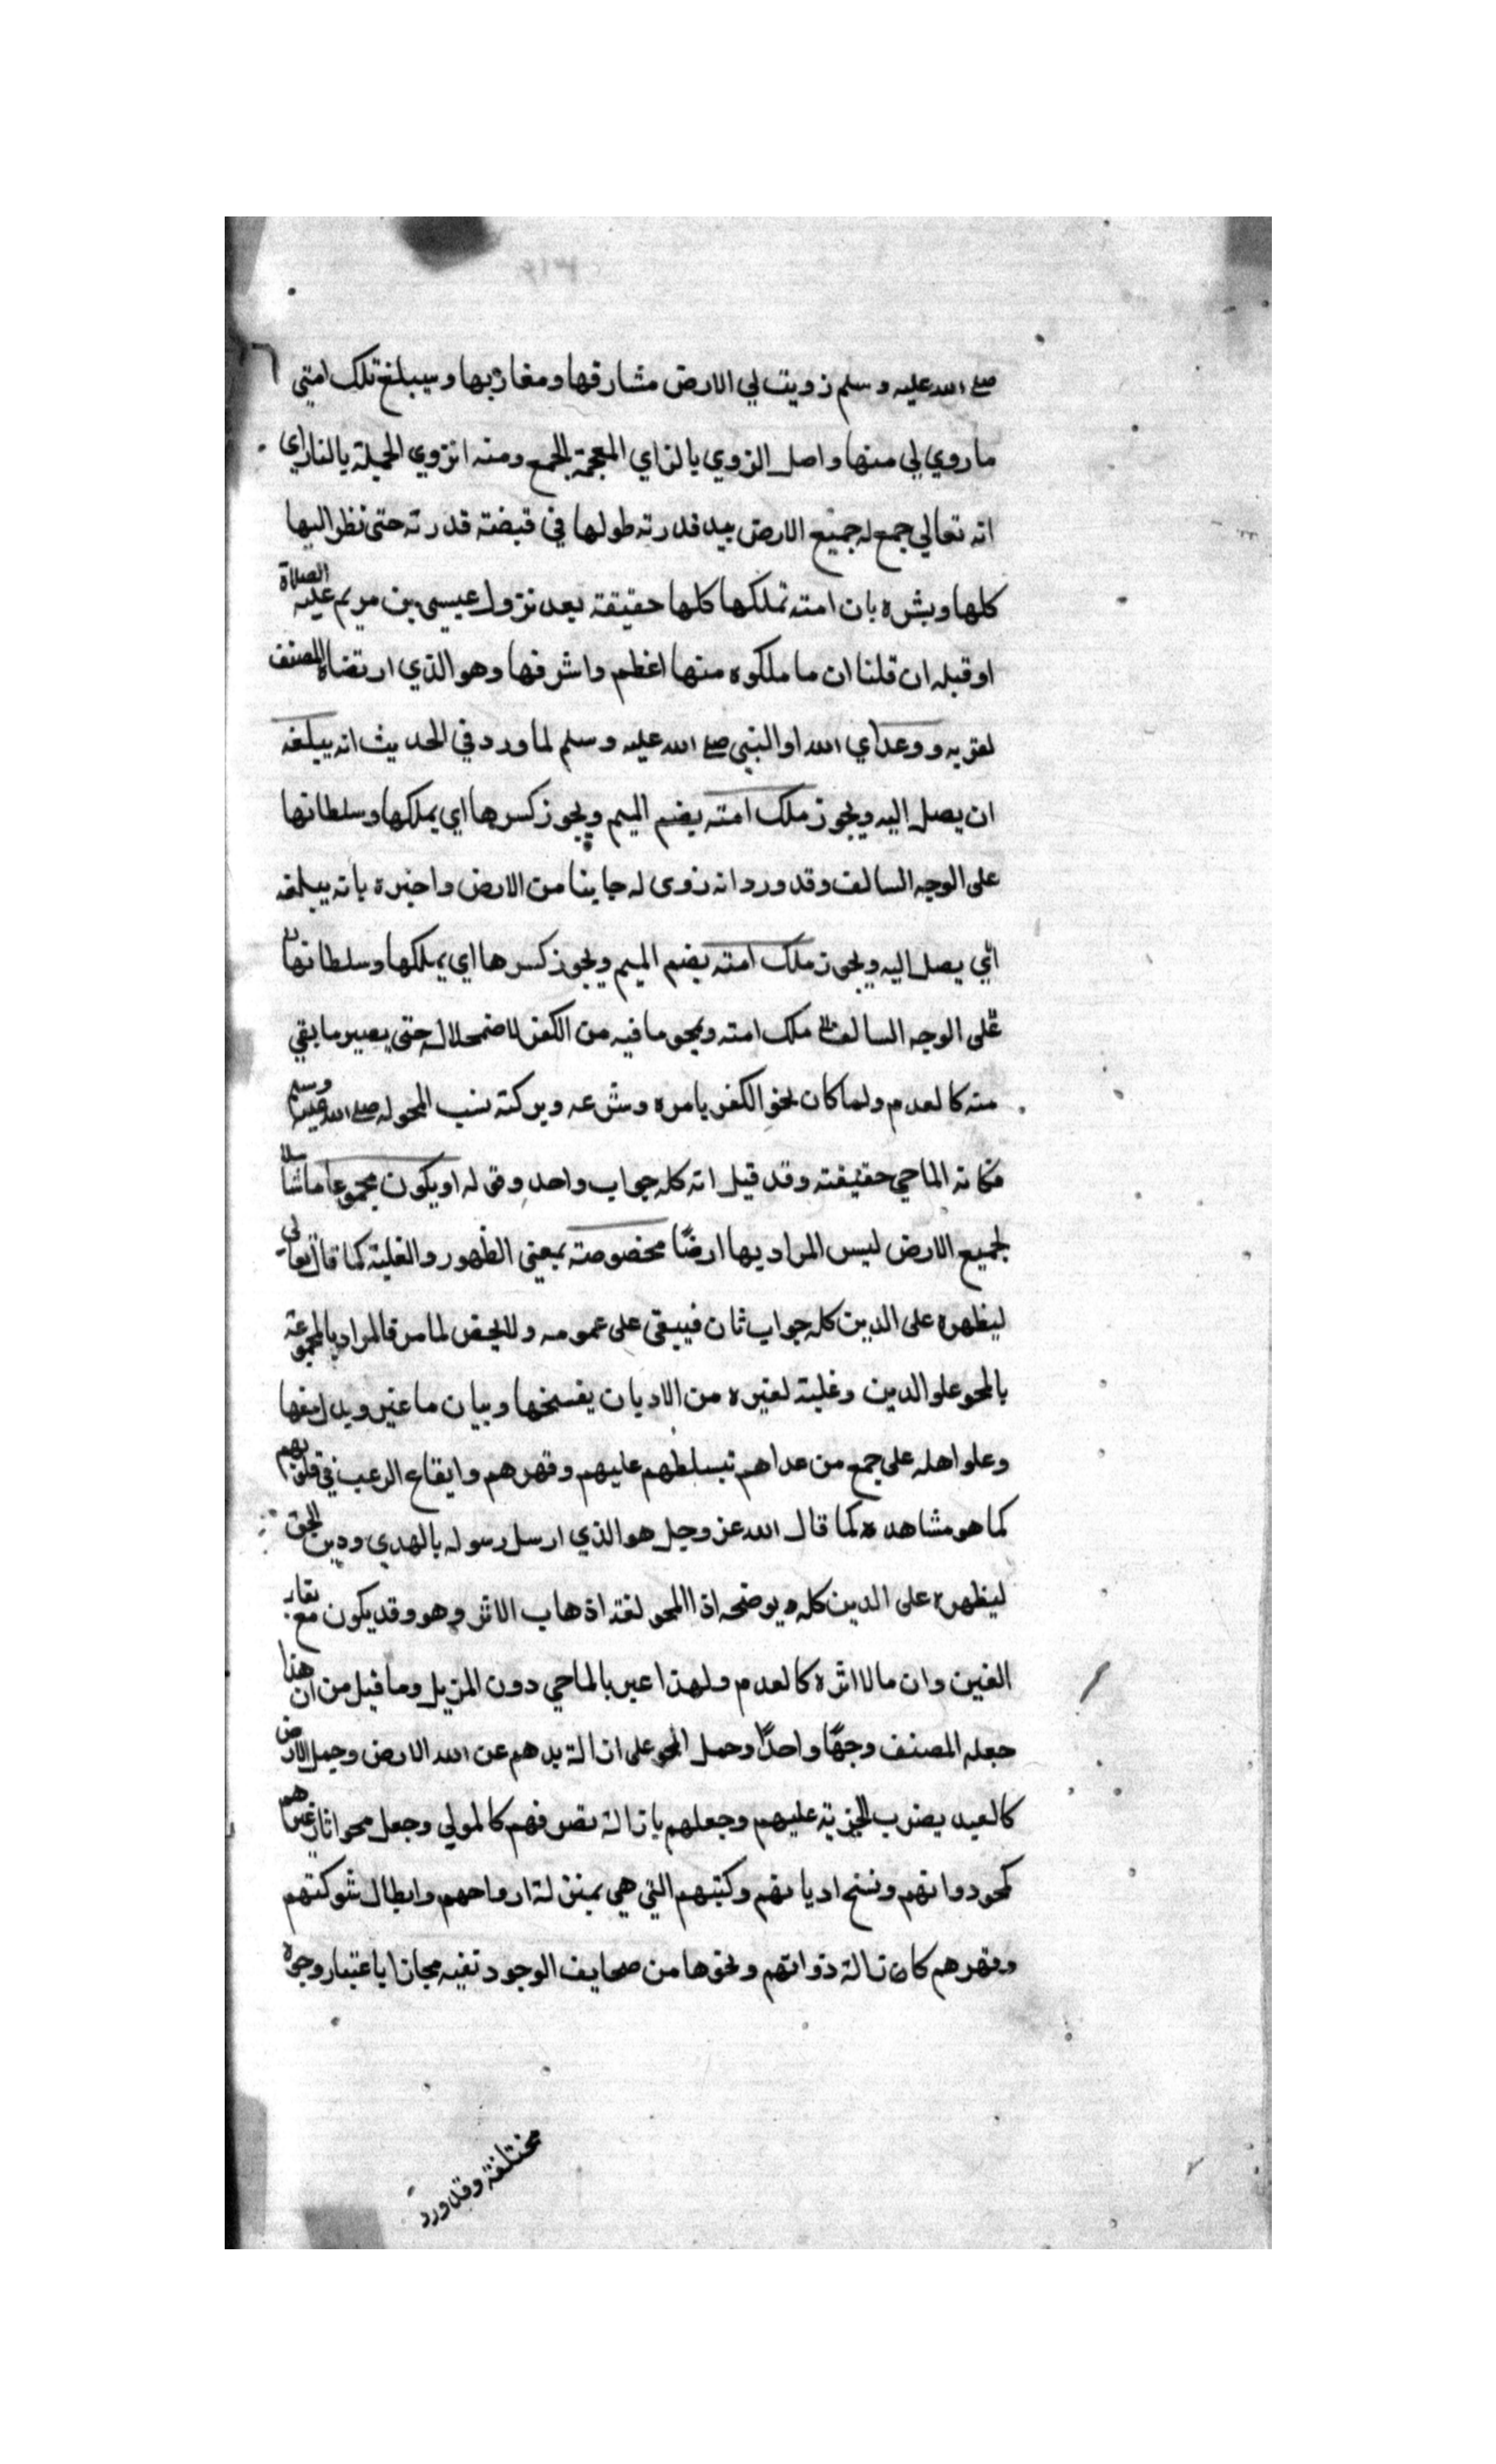 ٦
صلى الله عليه وسلم زويت لي الارض مشارقها ومغاربها وسيبلغ تلك امتي
ما روي لي منها واصل الزوي بالزاي المعجمة الجمع ومنه انزوي الجيلة بالنار اي
انه تعالي جمع له جميع الارض بيد قدرته طولها في قبضته قدرته حتى نظر اليها
كلها وبشره بان امته تملكها كلها حقيقة بعد نزول عيسى بن مريم عليه الصلاة
او قبله ان قلنا ان ما ملكوه منها اغظم واشرفها وهو الذي ارتضاه المصنف
لعزيه ووعد اي الله او النبي صلى الله عليه وسلم لما ورد في الحديث انه يبلغه
ان يصل اليه ويجوز ملك امته بضم الميم ويجوز كسرها اي يملكها وسلطانها
على الوجه السالف وقد ورد انه زوى له جاينا من الارض واخبره بانه يبلغه
اي يصل اليه ويجوز ملك امته بضم الميم ويجوز كسرها اي يملكها وسلطانها
على الوجه السالف ملك امته ويمحو ما فيه من الكفر لاضمحلاله حتى يصير ما بقي
منه كالعدم ولما كان محو الكفر بامره وشرعه وبركته نسب المحو له صلى الله عليه وسلم
فكانه الماحي حقيقته وقد قيل انه كله جواب واحد وقوله او يكون محمو عاما شاملا
لجميع الارض ليس المراد بها ارضًا مخصوصة بمعنى الظهور والغلبة كما قال تعالى
ليظهره على الدين كله جواب ثان فيبقى على عمومه ولا يخص لما مر فالمراد بالمحو عته
بالمحو علو الدين وغلبته لغيره من الاديان بفسخها وبيان ما غير وبدل منها
وعلو اهله على جمع من عداهم تبسلطهم عليهم وقهرهم وايقاع الرعب في قلوبهم
كما هو مشاهده كما قال الله عز وجل هو الذي ارسل رسوله بالهدي ودين الحق
ليظهره على الدين كله ويوضحه اذ المحو لغته اذهاب الاثر وهو وقد يكون مع بقاء
العين وان مالا اثره كالعدم ولهذا عبر بالماحي دون المزيل وما قيل من ان هذا
جعله المصنف وجهًا واحدًا وحمل المحو على ازالة يدهم عن الله الارض وجعل الارض
كالعيد بضرب الجزية عليهم وجعلهم بازالة تصرفهم كالمولي وجعل محو اثار غيرهم
كمحو دواتهم ونسخ اديانهم وكتبهم التي هي بمنزلة ارواحهم وابطال شوكتهم
وقهرهم كان زالة ذواتهم ومحوها من صحايف الوجود تفيه مجازا باعتبار وجوه
مختلفة وقد ورد